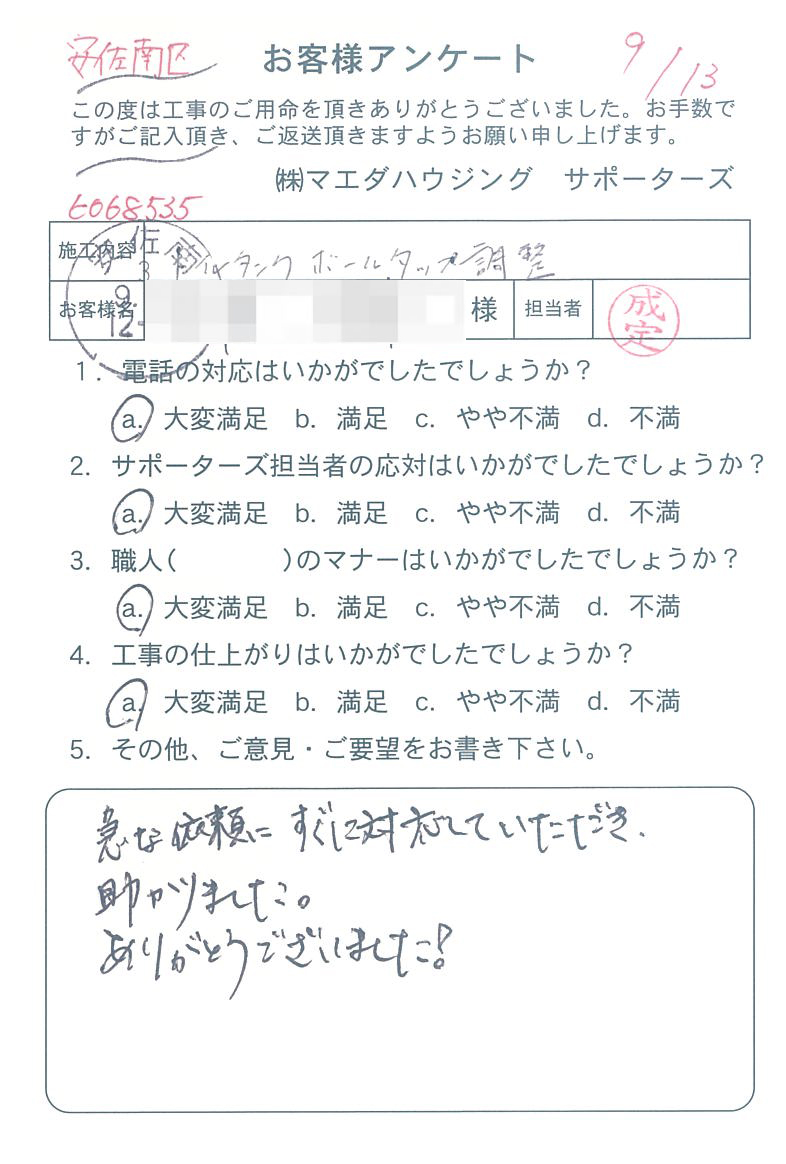 安佐南区
お客様アンケート
9/13
この度は工事のご用命を頂きありがとうございました。お手数で
すがご記入頂き、ご返送頂きますようお願い申し上げます。
㈱マエダハウジング サポーターズ
t068535
施工内容 タンク ボールタップ調整
お客様名 様 担当者 成定
佐
3
9.
12-
1. 電話の対応はいかがでしたでしょうか？
a. 大変満足 b. 満足 c. やや不満 d. 不満
2. サポーターズ担当者の応対はいかがでしたでしょうか？
a. 大変満足 b. 満足 c. やや不満 d. 不満
3. 職人( )のマナーはいかがでしたでしょうか？
a. 大変満足 b. 満足 c. やや不満 d. 不満
4. 工事の仕上がりはいかがでしたでしょうか？
a. 大変満足 b. 満足 c. やや不満 d. 不満
5. その他、ご意見・ご要望をお書き下さい。
急な依頼に すぐに対応していただき、
助かりました。
ありがとうございました!